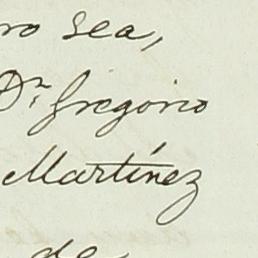 ro sea,
Dn. Gregorio
Martínez
de